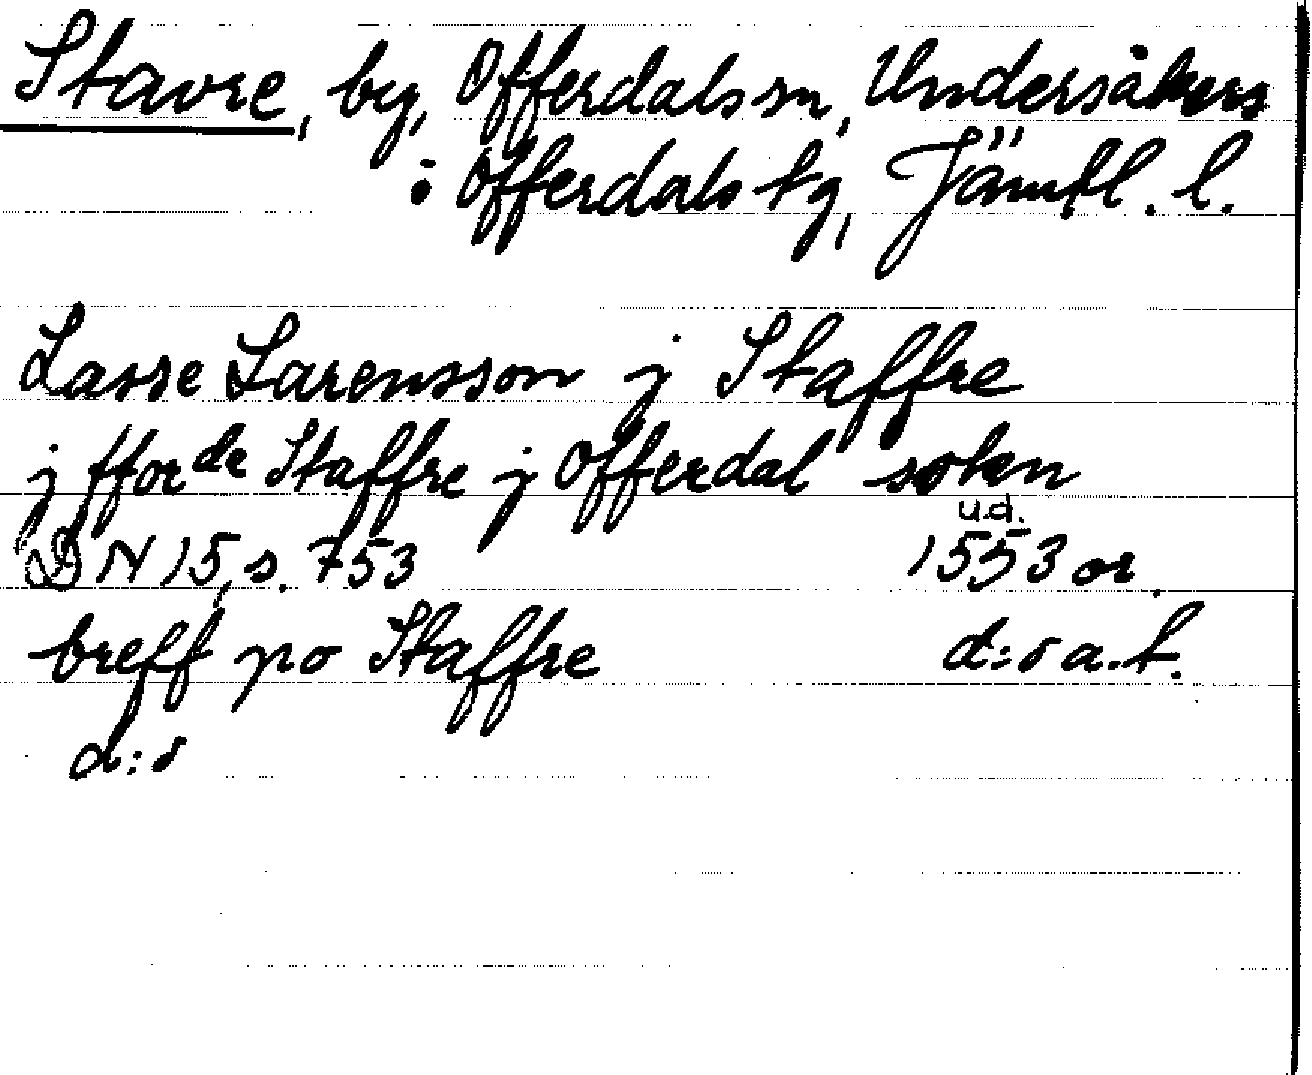 Stavre, by, Offerdals sn, Undersåkers
o Offerdals tg, Jämtl. l.
Lasse Larensson j Staffre
j fforde Staffre j Offerdal sokn
DN 15, s. 753 u.d. 1553 or.
breff po Staffre d:o a.t.
d:o